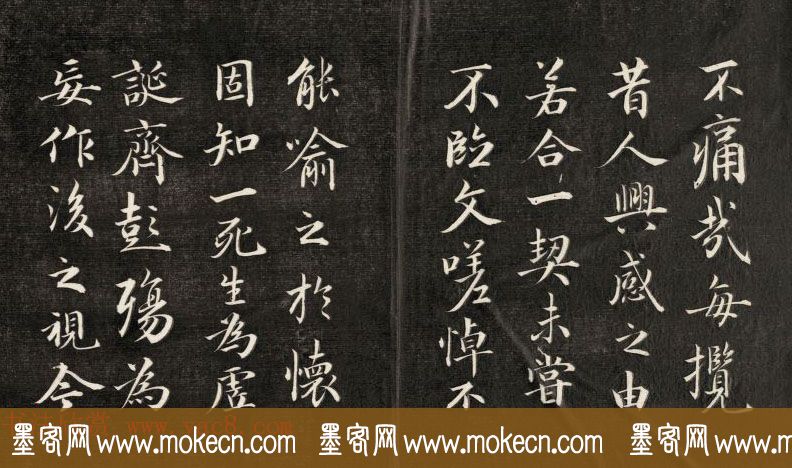 不痛哉每攬
昔人興感之由
若合一契未嘗
不臨文嗟悼不
能喻之於懷
固知一死生為虛
誕齊彭殤為
妄作後之視今
墨客网 www.mokecn.com 墨客网 www.mokecn.com 墨客网 www.m